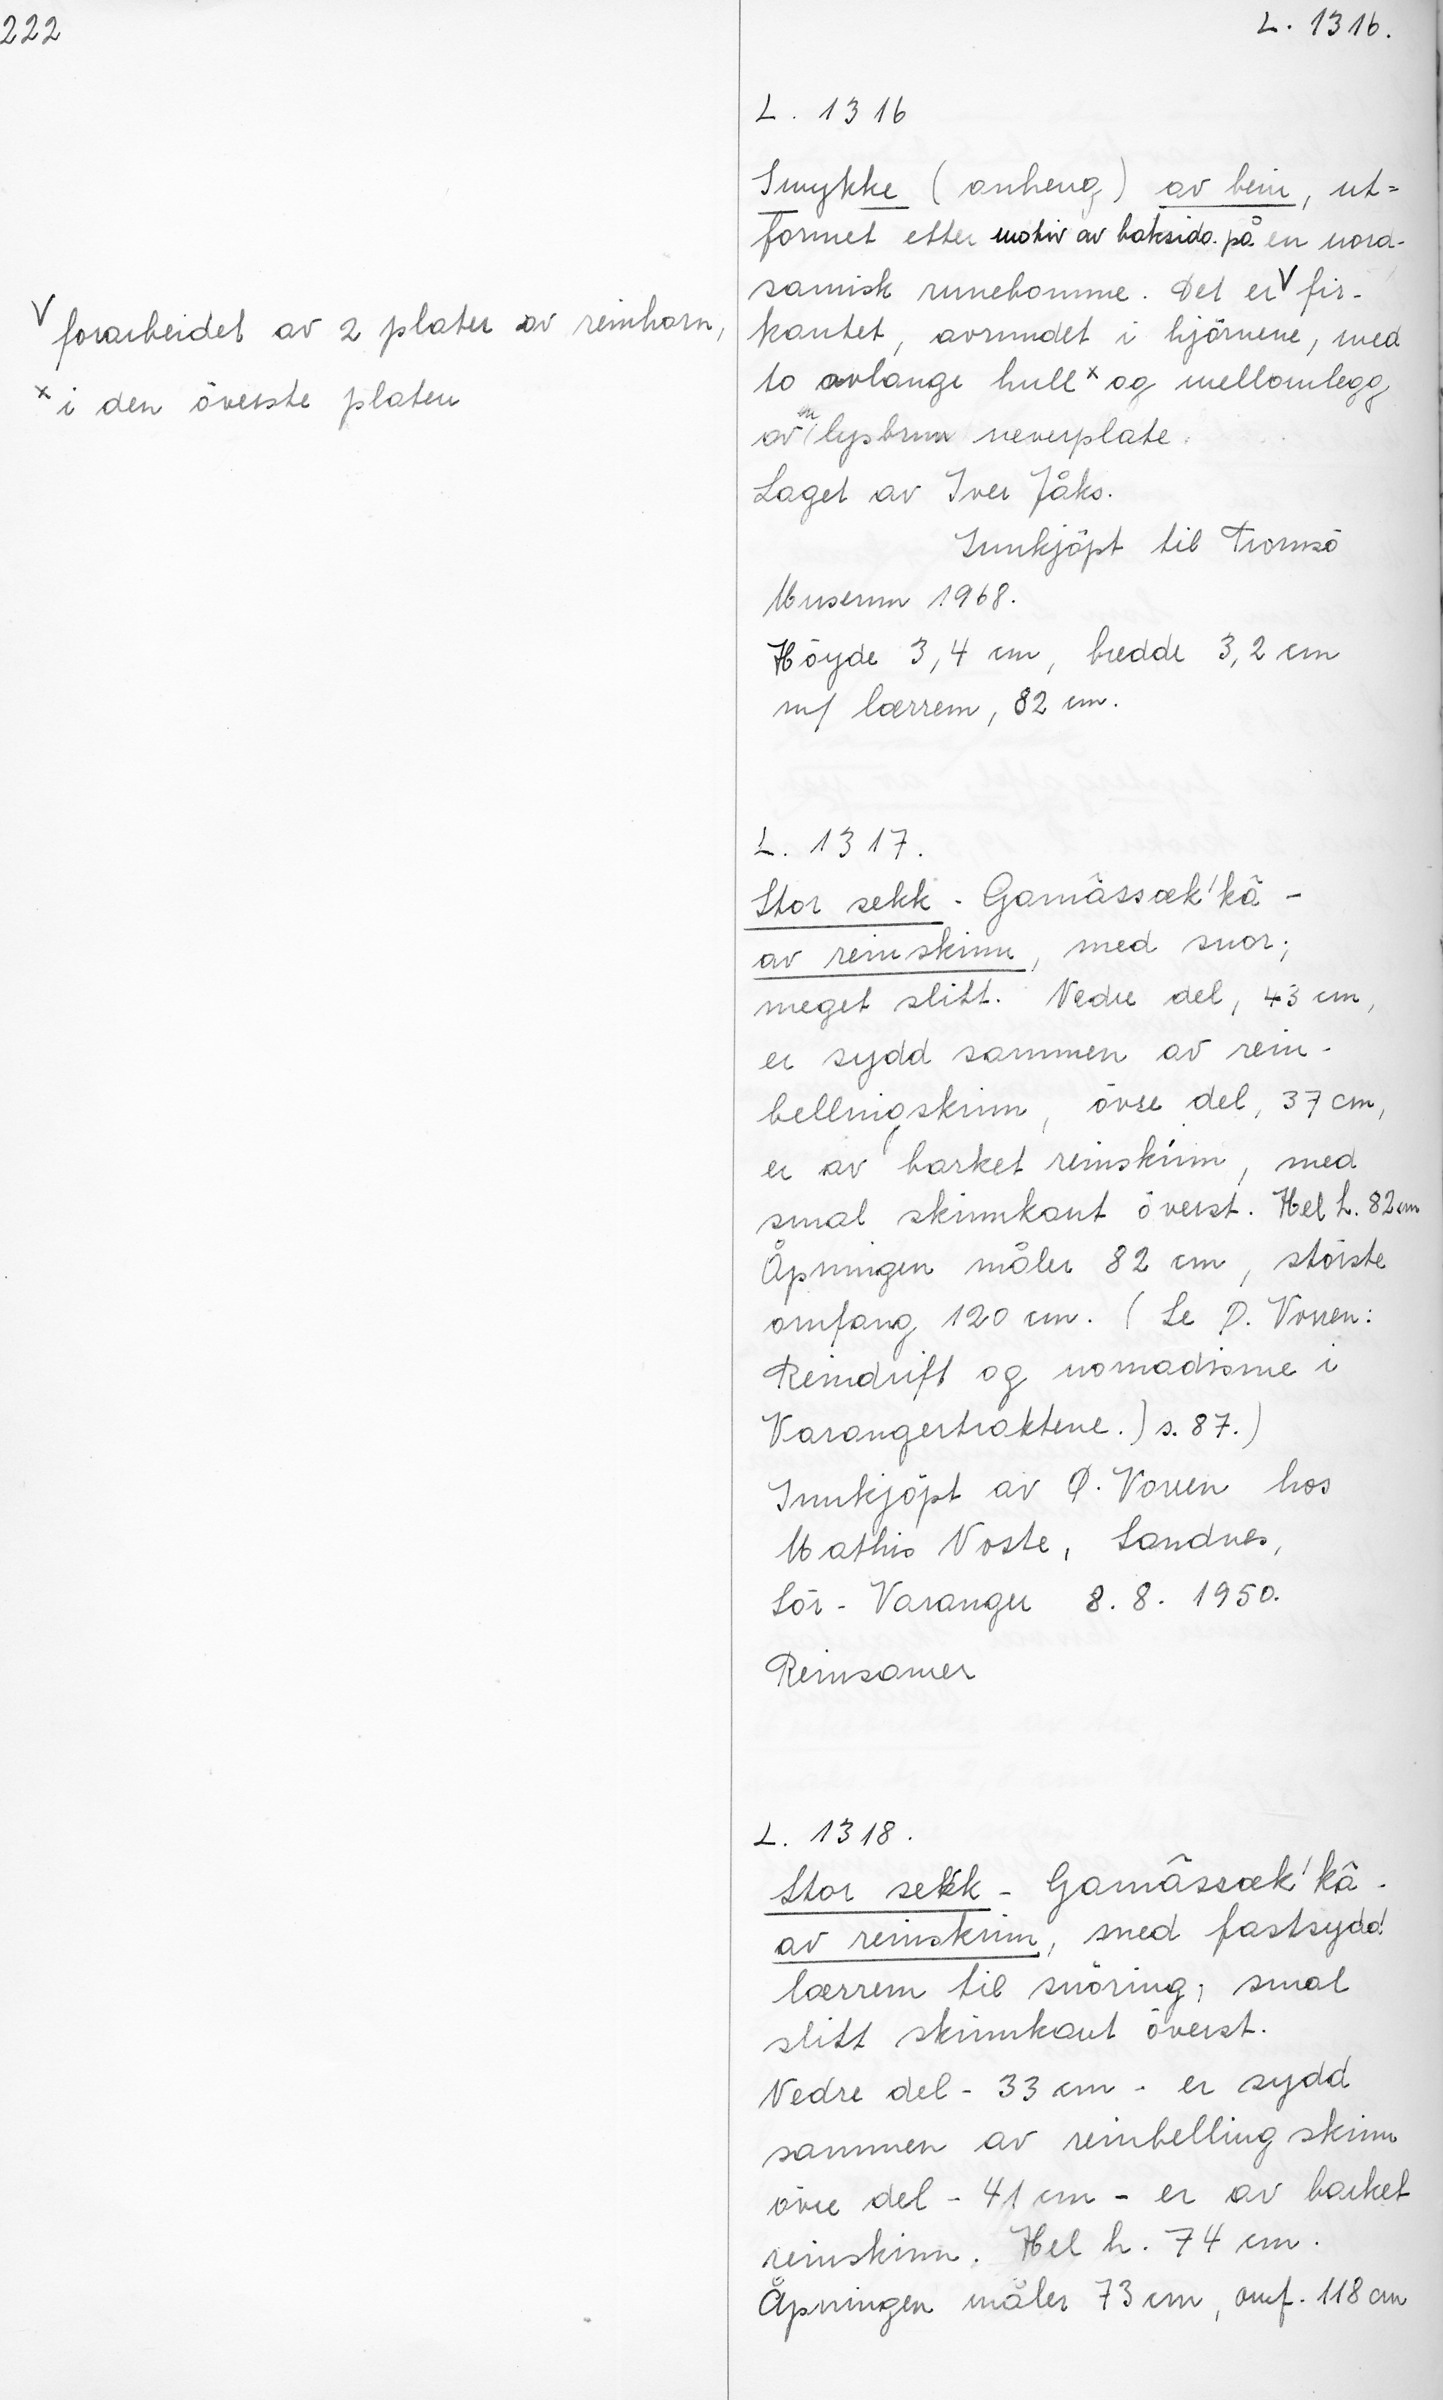 222
L. 1316.
V forarbeidet av 2 plater av reinhorn,
x i den överste platen
L. 1316
Smykke (anheng) av bein, ut=
formet etter motiv av baksida på en nord-
samisk runebomme. Det er V fir-
kantet, avrundet i hjörnene, med
to avlange hull x og mellomlegg
av en lysbrun neverplate.
Laget av Iver Jåks.
Innkjöpt til Tromsö
Museum 1968.
Höyde 3,4 cm, bredde 3,2 cm
m/ lærrem, 82 cm.
L. 1317.
Stor sekk - Gamâssæk'kâ -
av reinskinn, med snor;
meget slitt. Nedre del, 43 cm,
er sydd sammen av rein-
bellingskinn, övre del, 37 cm,
er av barket reinskinn, med
smal skinnkant överst. Hel h. 82 cm
Åpningen måler 82 cm, störste
omfang 120 cm. (Se Ø. Vorren:
Reindrift og nomadisme i
Varangertraktene.) s. 87.)
Innkjöpt av Ø. Vorren hos
Mathis Noste, Sandnes,
Sör-Varanger 8.8. 1950.
Reinsamer
L. 1318.
Stor sekk - Gamâssæk'kâ -
av reinskinn, med fastsydd
lærrem til snöring; smal
slitt skinnkant överst.
Nedre del - 33 cm - er sydd
sammen av reinbelling skinn
övre del - 41 cm - er av barket
reinskinn. Hel h. 74 cm.
Åpningen måler 73 cm, omf. 118 cm